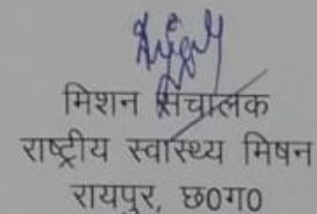 मिशन संचालक
राष्ट्रीय स्वास्थ्य मिषन
रायपुर, छ0ग0